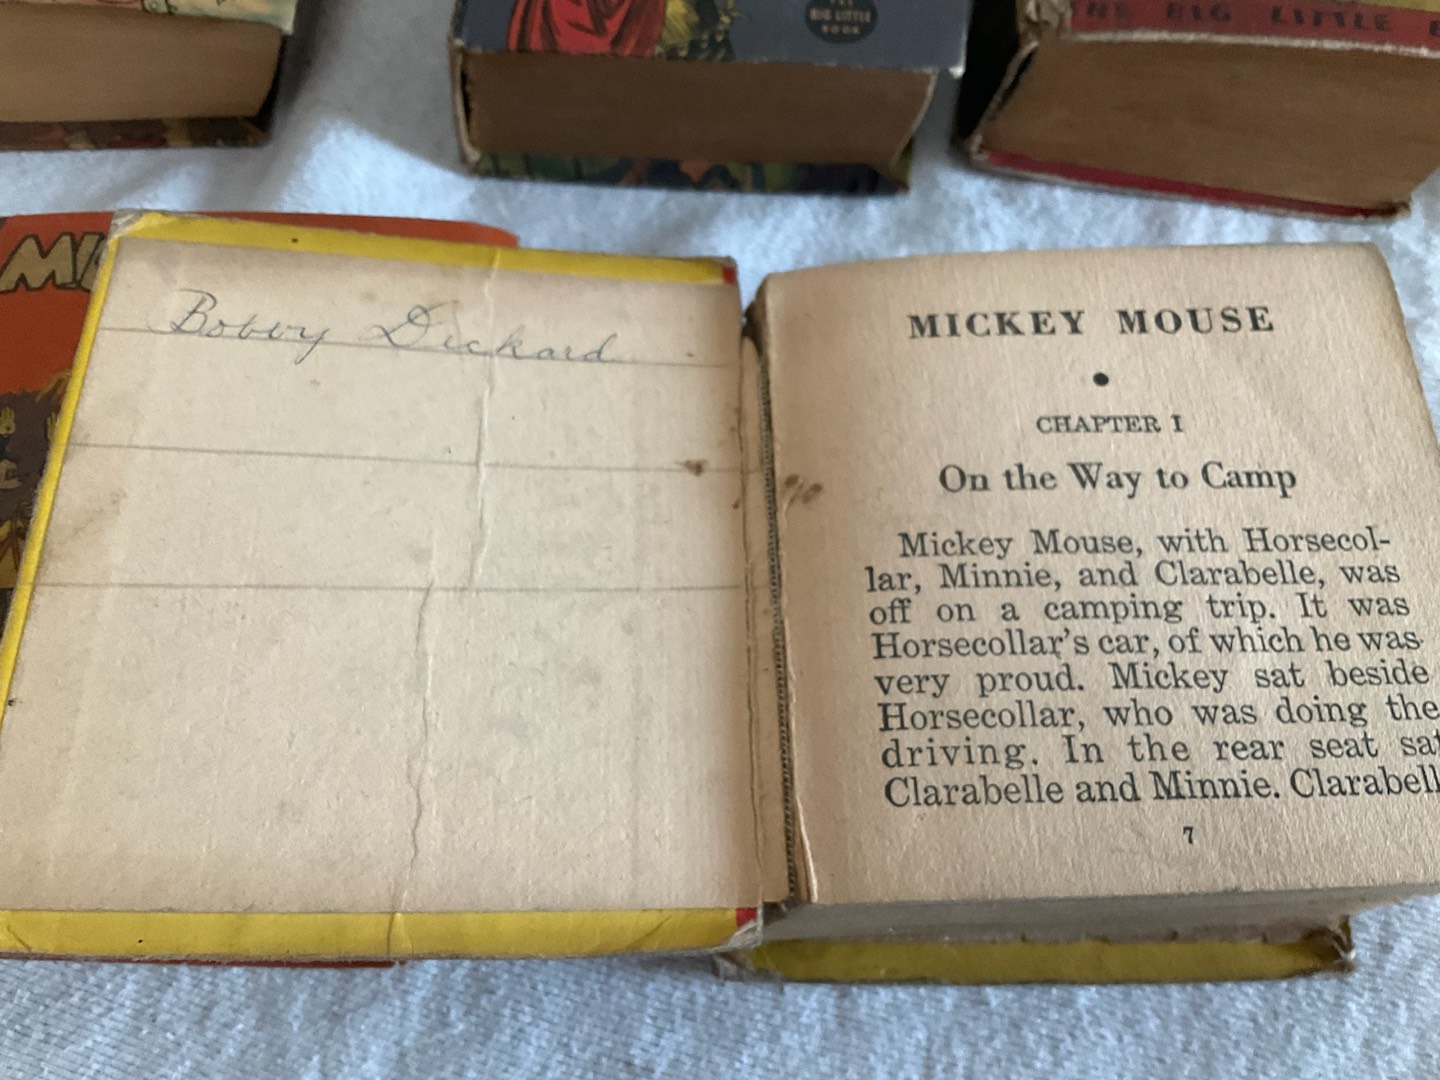 THE
BIG LITTLE
BOOK
THE BIG LITTLE
Bobby Deckard
MICKEY MOUSE
CHAPTER I
On the Way to Camp
Mickey Mouse, with Horsecol-
lar, Minnie, and Clarabelle, was
off on a camping trip. It was
Horsecollar's car, of which he was
very proud. Mickey sat beside
Horsecollar, who was doing the
driving. In the rear seat sat
Clarabelle and Minnie. Clarabell
7